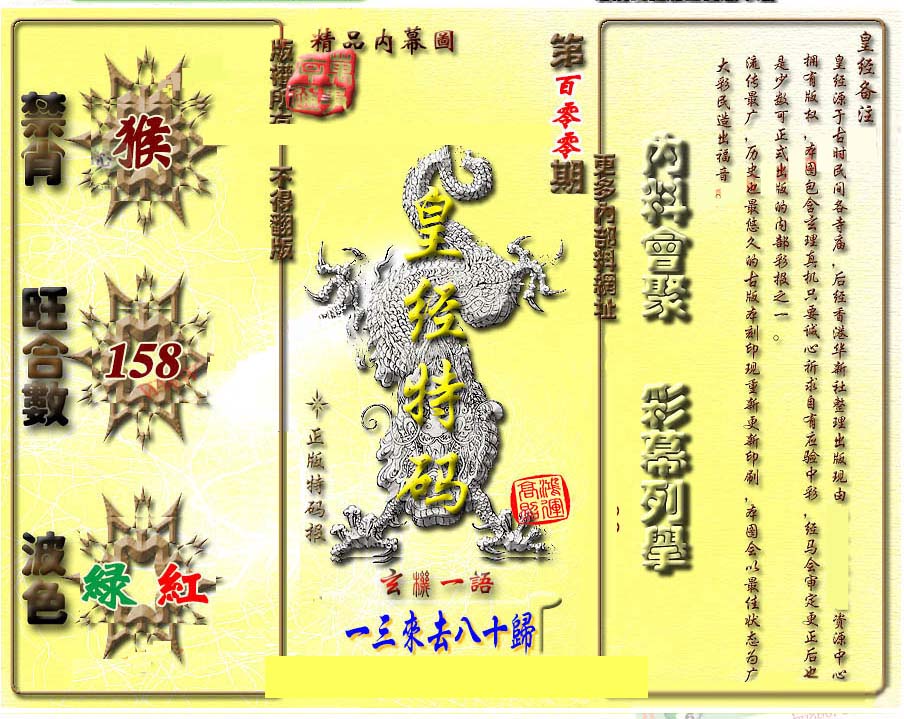 精品內幕圖
版權所有
不得翻版
第百零零期
更多內部料網址
禁肖
猴
旺合數
158
波色
綠 紅
皇经特码
正版特码报
鴻運高照
玄機一語
一三來去八十歸
內料會聚
彩幕列舉
皇经备注
皇经源于古时民间各寺庙,后经香港华新社整理出版现由 资源中心
拥有版权,本图包含玄理真机只要诚心祈求自有应验中彩,经马会审定更正后也
是少数可正式出版的内部彩报之一。
流传最广,历史也最悠久的古版本刻印现重新更新印刷,本图会以最佳状态为广
大彩民造出福音